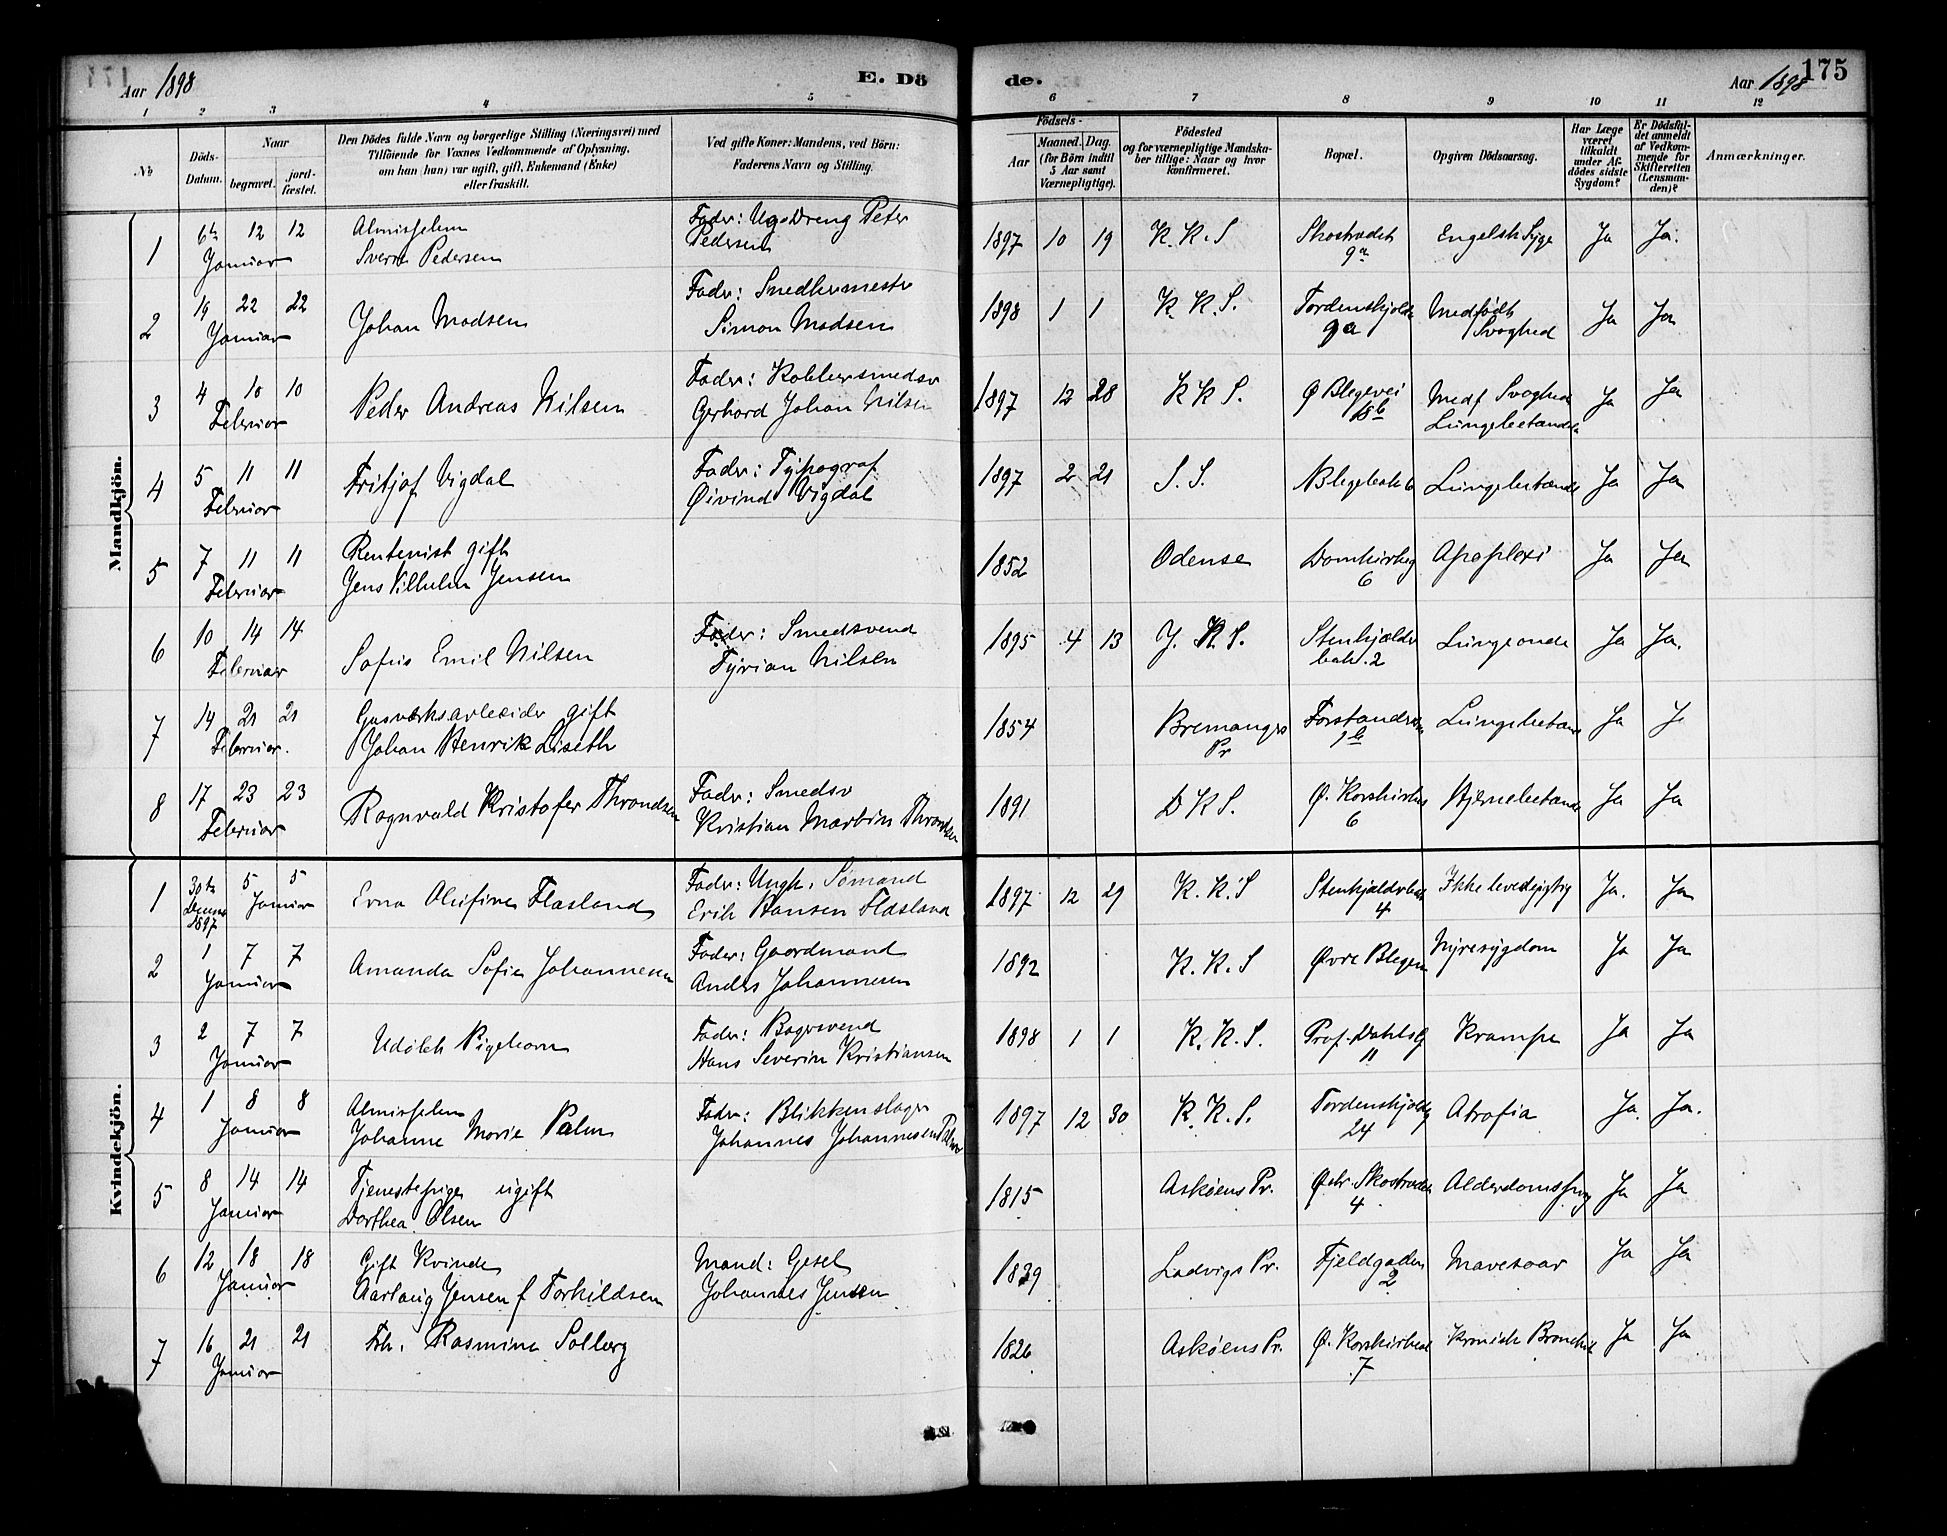 Aar 1898
E. Dö
de.
Aar 1898
175
1 2 3 4 5 6 7 8 9 10 11 12
№
Döds-
Datum.
Naar
begravet.
jord-
fæstet.
Den Dödes fulde Navn og borgerlige Stilling (Næringsvei) med
Tilföiende for Voxnes Vedkommende af Oplysning,
om han (hun) var ugift, gift, Enkemand (Enke)
eller fraskilt.
Ved gifte Koner: Mandens, ved Börn:
Faderens Navn og Stilling.
Födsels-
Aar
Maaned. Dag.
(for Börn indtil
5 Aar samt
Værnepligtige).
Födested
og for værnepligtige Mandska-
ber tillige: Naar og hvor
konfirmeret.
Bopæl.
Opgiven Dödsaarsag.
Har Læge
været
tilkaldt
under Af-
dödes sidste
Sygdom?
Er Dödsfal-
det anmeldt
af Vedkom-
mende for
Skifteretten
(Lensman-
den)?
Anmærkninger.
Mandkjön.
1 6te 12 12 Januar
Sverre Pedersen
Fader: Peter
Pedersen
1897 10 19 K. K. S Skostrædet Engelsk Syge Ja Ja.
9a
2 19 22 22 Januar
Johan Madsen
Fader: Smedkermester
Simon Madsen
1898 1 1 K. K. S. Tordenskjolds Medfødt Ja Ja
9a Svaghed
3 4 10 10 Februar
Peder Andreas Nilsen
Fader: Kobbersmedsv
Gerhard Johan Nilsen
1897 12 28 K K S. Ø Blegevei Medf Svaghed Ja Ja
18b
4 5 11 11 Februar
Fritjof Vigdal
Fader: Typograf
Øivind Vigdal
1897 2 21 S. S. Ja Ja
5 7 11 11 Februar
Rentenist gift
Jens Vilhelm Jensen
1852 Odense Domkirkeg Apoplexi Ja Ja
6
6 10 14 14 Februar
Sofus Emil Nilsen
Fader: Smedsvend
Tyrian Nilsen
1895 4 13 J. K S. Stenkjælder Lungeonde Ja Ja.
bak. 2
7 14 21 21 Februar.
Gasværksarbeider gift
Johan Henrik Liseth
1854 Bremanger Ja J
Pr 1b
8 17 23 23 Februar
Ragnvald Kristofer Throndsen
Fader: Smedsv
Kristian Martin Throndsen
1891 D K S. Ja Ja
6
Kvindekjön.
1 30te 5 5 Januar
Decem
1897
Erna Olufine Flæsland
Fader: Ungk. Sömand
Erik Hansen Flæsland
1897 12 29 K. K. S Ikke levedygtig Ja. Ja
4
2 1 7 7 Januar
Amanda Sofie Johannesen
Fader: Gaardmand
Anders Johannesen
1892 K. K. S Nyresygdom Ja Ja
3 2 7 7 Januar
Udöbt Pigebarn
Fader: Bagersvend
Hans Severin Kristiansen
1898 1 1 K. K. S. Prof. Dahls G Krampe Ja Ja
11
4 1 8 8 Januar
Johanne Marie Palm
Fader: Blikkenslager
Johannes Johannesen Palm
1897 12 30 K. K. S. Tordenskjoldsg Atrofia Ja. Ja.
24
5 8 14 14 Januar
Tjenestepige ugift
Dorthea Olsen
1815 Askøens Pr. Øvr. Skostræde Ja Ja
4
6 12 18 18 Januar
Gift Kvinde
Aarlaug Jensen f Torkildsen
Mand: Gesel
Johannes Jensen
1839 Ladvigs Pr. Fjeldgaden Mavesaar Ja Ja
2
7 16 21 21 Januar
Rasmine Solberg
1826 Askøens Pr. Kronisk Bronchit Ja Ja
7